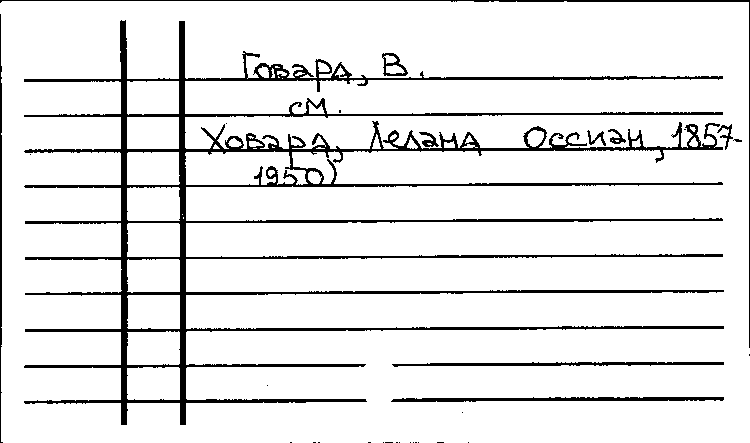 Говард, В.
см.
Ховард, Леланд Оссиан, 1857-
1950)